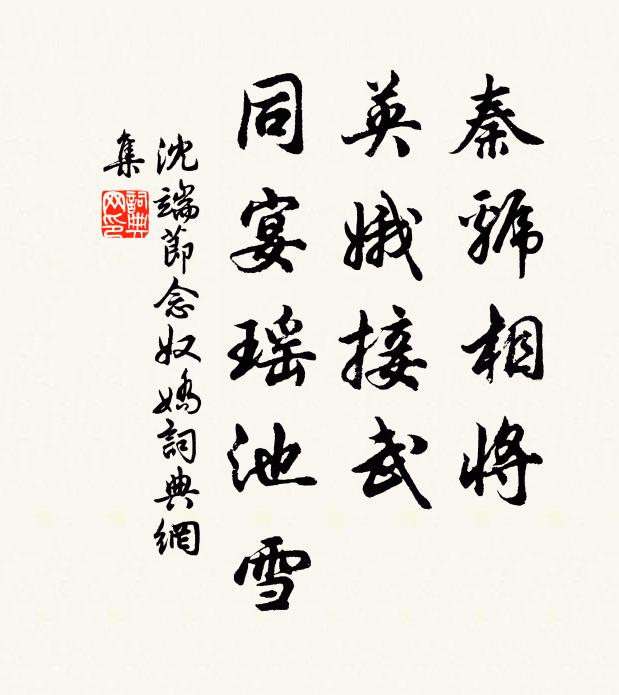 秦虢相将
英娥接武
同宴瑶池雪
沈端節念奴嬌詞典網
集
詞典网印